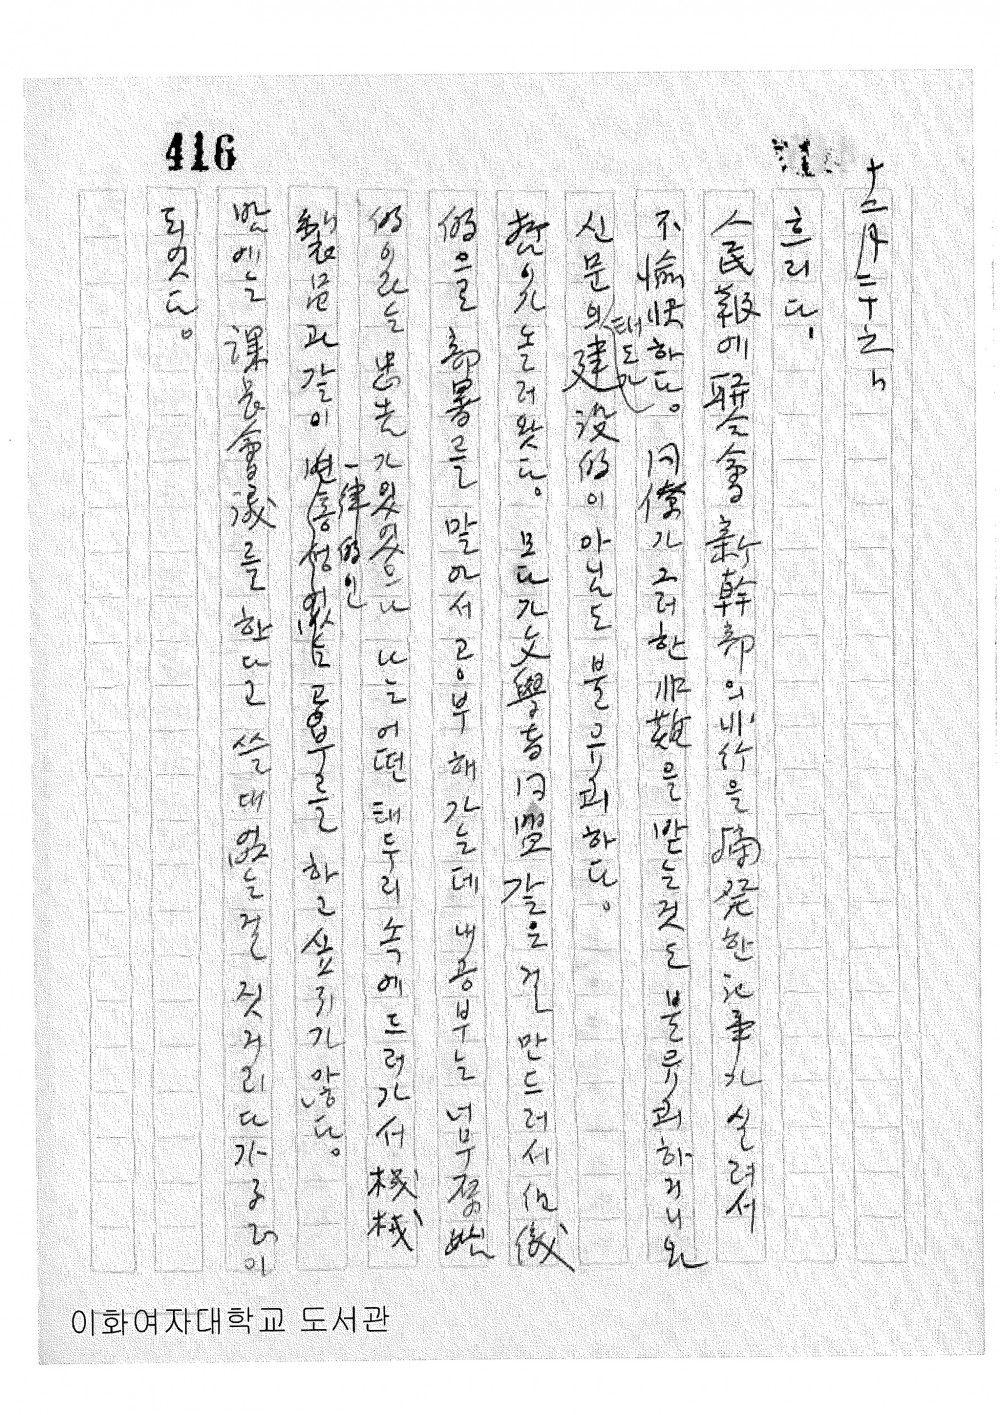 416
十二月二十七日
흐리다.
人民報에 聯合會 新幹部의 非行을 摘發한 記事가 실려서
不愉快하다。 同僚가 그러한 非難을 받는것도 불유쾌하거니와
신문의 태도가 建設的이 아닌도 불유쾌하다。
이가 놀러왓다。 모다가 文學者同盟 같은걸 만드러서
的으로 部署를 말아서 공부해가는데 내공부는 너무
的이라는 忠告가 있엇으나 나는 어떤 태두리 속에 드러가서 機械
製品과 같이 一律的인 변통성 없는 공부를 하고 싶지가 않다。
밤에는 課長會議를 한다고 쓸대없는걸 짓거리다가
되엿다。
이화여자대학교 도서관